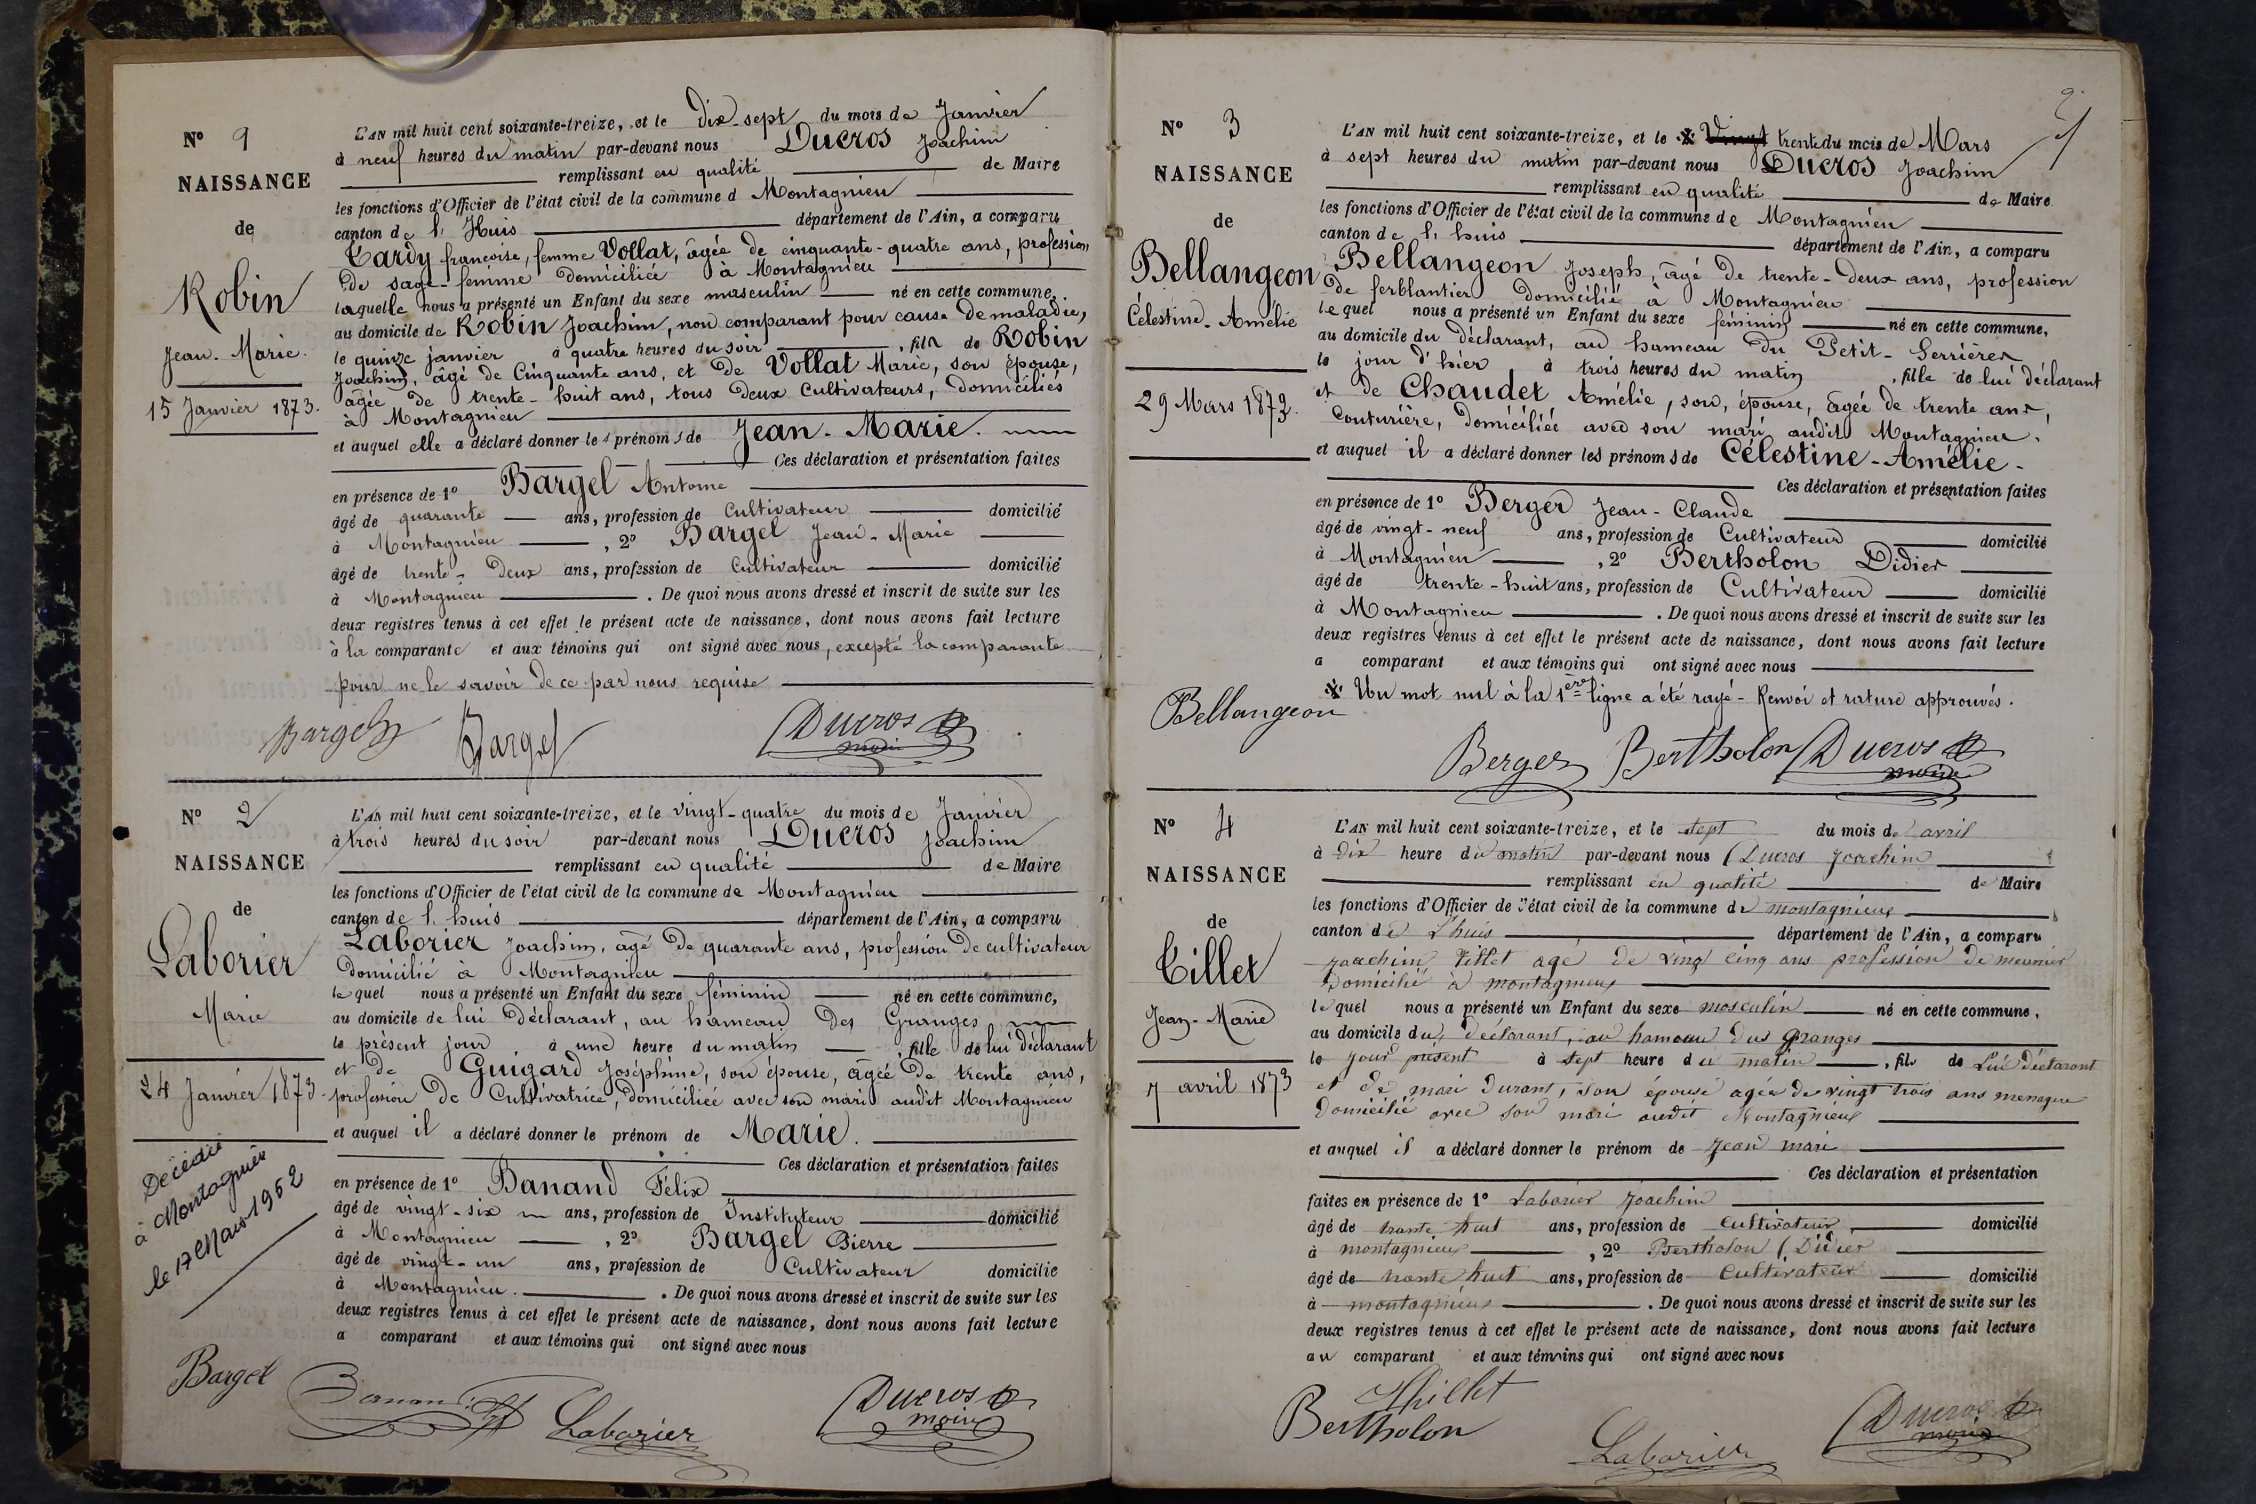 N° 9
NAISSANCE
de
Robin
Jean-Marie.
15 Janvier 1873.
L'AN mil huit cent soixante-treize, et le dix-sept du mois de Janvier
à neuf heures du matin par-devant nous Ducros Joachim
remplissant en qualité de Maire
les fonctions d'Officier de l'état civil de la commune d Montagnieu
canton de l'Huis département de l'Ain, a comparu
Tardy françoise, femme Vollat, âgée de cinquante-quatre ans, profession
de sage-femme domiciliée à Montagnieu
laquelle nous a présenté un Enfant du sexe masculin né en cette commune,
au domicile de Robin Joachim, non comparant pour cause de maladie,
le quinze janvier à quatre heures du soir, fils de Robin
Joachim, âgé de Cinquante ans, et de Vollat Marie, son épouse,
âgée de trente-huit ans, tous deux Cultivateurs, domiciliés
à Montagnieu
et auquel elle a déclaré donner les prénoms de Jean-Marie.
Ces déclaration et présentation faites
en présence de 1° Bargel Antoine
âgé de quarante ans, profession de Cultivateur domicilié
à Montagnieu, 2° Bargel Jean-Marie
âgé de trente-deux ans, profession de Cultivateur domicilié
à Montagnieu. De quoi nous avons dressé et inscrit de suite sur les
deux registres tenus à cet effet le présent acte de naissance, dont nous avons fait lecture
à la comparante et aux témoins qui ont signé avec nous, excepté la comparante
pour ne le savoir de ce par nous requise
Bargel Bargel Ducros
maire
N° 2
NAISSANCE
de
Laborier
Marie
24 Janvier 1873.
Décédée
à Montagnieu
le 17 Mars 1952
L'AN mil huit cent soixante-treize, et le vingt-quatre du mois de Janvier
à trois heures du soir par-devant nous Ducros Joachim
remplissant en qualité de Maire
les fonctions d'Officier de l'état civil de la commune de Montagnieu
canton de l'huis département de l'Ain, a comparu
Laborier Joachim, agé de quarante ans, profession de cultivateur
domicilié à Montagnieu
lequel nous a présenté un Enfant du sexe féminin né en cette commune,
au domicile de lui déclarant, au hameau des Granges
le présent jour à une heure du matin, fille de lui déclarant
et de Guigard Joséphine, son épouse, âgée de trente ans,
profession de Cultivatrice, domiciliée avec son mari audit Montagnieu
et auquel il a déclaré donner le prénom de Marie.
Ces déclaration et présentation faites
en présence de 1° Banand Félix
âgé de vingt-six ans, profession de Instituteur domicilié
à Montagnieu, 2° Bargel Pierre
âgé de vingt-un ans, profession de Cultivateur domicilié
à Montagnieu. De quoi nous avons dressé et inscrit de suite sur les
deux registres tenus à cet effet le présent acte de naissance, dont nous avons fait lecture
a comparant et aux témoins qui ont signé avec nous
Bargel Laborier Ducros
maire
N° 3
NAISSANCE
de
Bellangeon
Célestine-Amélie
29 Mars 1873.
L'AN mil huit cent soixante-treize, et le Vingt trente du mois de Mars
à sept heures du matin par-devant nous Ducros Joachim
remplissant en qualité de Maire
les fonctions d'Officier de l'état civil de la commune de Montagnieu
canton de l'huis département de l'Ain, a comparu
Bellangeon Joseph, âgé de trente-deux ans, profession
de ferblantier domicilié à Montagnieu
lequel nous a présenté un Enfant du sexe féminin né en cette commune,
au domicile du déclarant, au hameau du Petit-Serrières
le jour d'hier à trois heures du matin, fille de lui déclarant
et de Chaudet Amélie, son épouse, âgée de trente ans,
Couturière, domiciliée avec son mari audit Montagnieu.
et auquel il a déclaré donner les prénoms de Célestine-Amélie.
Ces déclaration et présentation faites
en présence de 1° Berger Jean-Claude
âgé de vingt-neuf ans, profession de Cultivateur domicilié
à Montagnieu, 2° Bertholon Didier
âgé de trente-huit ans, profession de Cultivateur domicilié
à Montagnieu. De quoi nous avons dressé et inscrit de suite sur les
deux registres tenus à cet effet le présent acte de naissance, dont nous avons fait lecture
a comparant et aux témoins qui ont signé avec nous
Un mot nul à la 1ère ligne a été rayé - Renvoi et rature approuvés.
Bellangeon
Berger Bertholon Ducros
maire
N° 4
NAISSANCE
de
Tillet
Jean-Marie
7 avril 1873
L'AN mil huit cent soixante-treize, et le sept du mois de avril
à dix heure du matin par-devant nous Ducros Joachim
remplissant en qualité de Maire
les fonctions d'Officier de l'état civil de la commune de montagnieux
canton de L'huis département de l'Ain, a comparu
joachim Tillet agé de vingt cinq ans profession de meunier
domicilié à montagnieux
lequel nous a présenté un Enfant du sexe masculin né en cette commune,
au domicile du déclarant, au hameau dus granges
le jour présent à sept heure du matin, fils de Lui déclarant
et de mari Durant, son épouse agée de vingt trois ans menagere
domicilié avec son mari audit Montagnieux
et auquel il a déclaré donner le prénom de jean mari
Ces déclaration et présentation
faites en présence de 1° Laborier joachim
âgé de trante huit ans, profession de cultivateur domicilié
à montagnieux, 2° Bertholon Didier
âgé de trante huit ans, profession de Cultivateur domicilié
à montagnieux. De quoi nous avons dressé et inscrit de suite sur les
deux registres tenus à cet effet le présent acte de naissance, dont nous avons fait lecture
au comparant et aux témoins qui ont signé avec nous
Thillet
Bertholon Laborier Ducros
maire